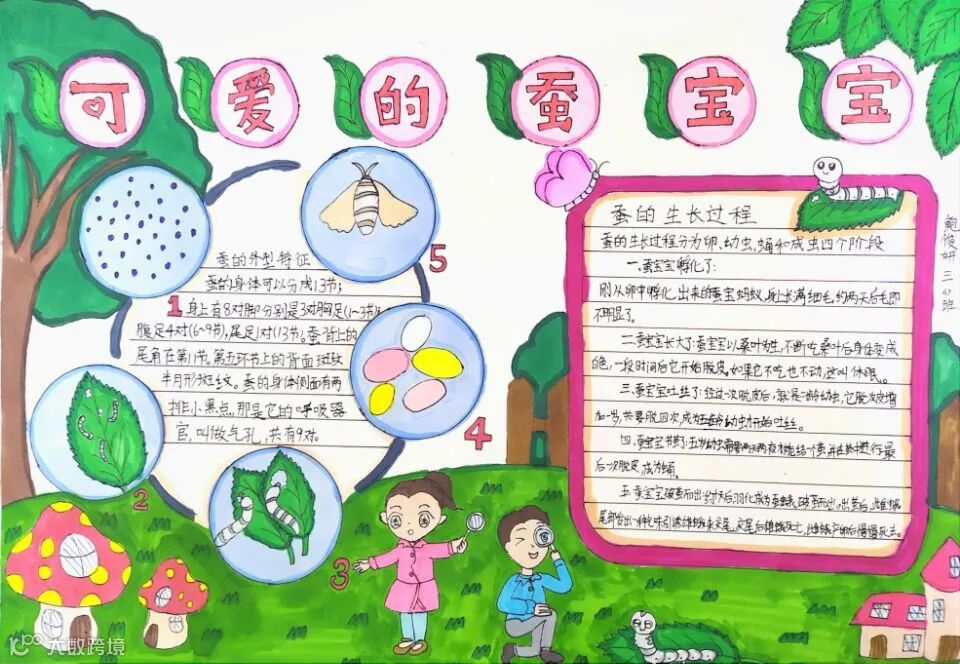 可爱的蚕宝宝
蚕的外型特征
蚕的身体可以分成13节；
身上有8对脚分别是3对胸足(1~3节)
腹足4对(6~9节)，尾足1对(13节)。蚕背上的
尾角在第11节。第五环节上的背面斑纹
半月形斑纹。蚕的身体侧面有两
排小黑点，那是它的呼吸器
官，叫做气孔，共有9对。
1
2
3
4
5
蚕的生长过程
蚕的生长过程分为卵、幼虫、蛹和成虫四个阶段
一.蚕宝宝孵化了：
刚从卵中孵化出来的蚕宝蚂蚁，身上长满细毛，约两天后毛即
不明显了。
二.蚕宝宝长大了：蚕宝宝以桑叶为生，不断吃桑叶后身体变成
白色，一段时间后它开始脱皮，如果不吃也不动，这叫休眠。
三.蚕宝宝吐丝了：经过一次脱皮后，就是二龄幼虫，它脱次皮增
加一岁，共要脱四次，成为五龄幼虫才开始吐丝。
四.蚕宝宝节了：五岁幼虫需要两天两夜才能结一个茧并在茧中进行最
后一次脱皮，成为蛹。
五.蚕宝宝破茧而出：约天后，羽化成为蚕蛾，破茧而出，出茧后，
尾部一种气味引诱雄蛾来交尾，交尾后雄蛾死亡，产卵后慢慢死去。
三 班
大数跨境